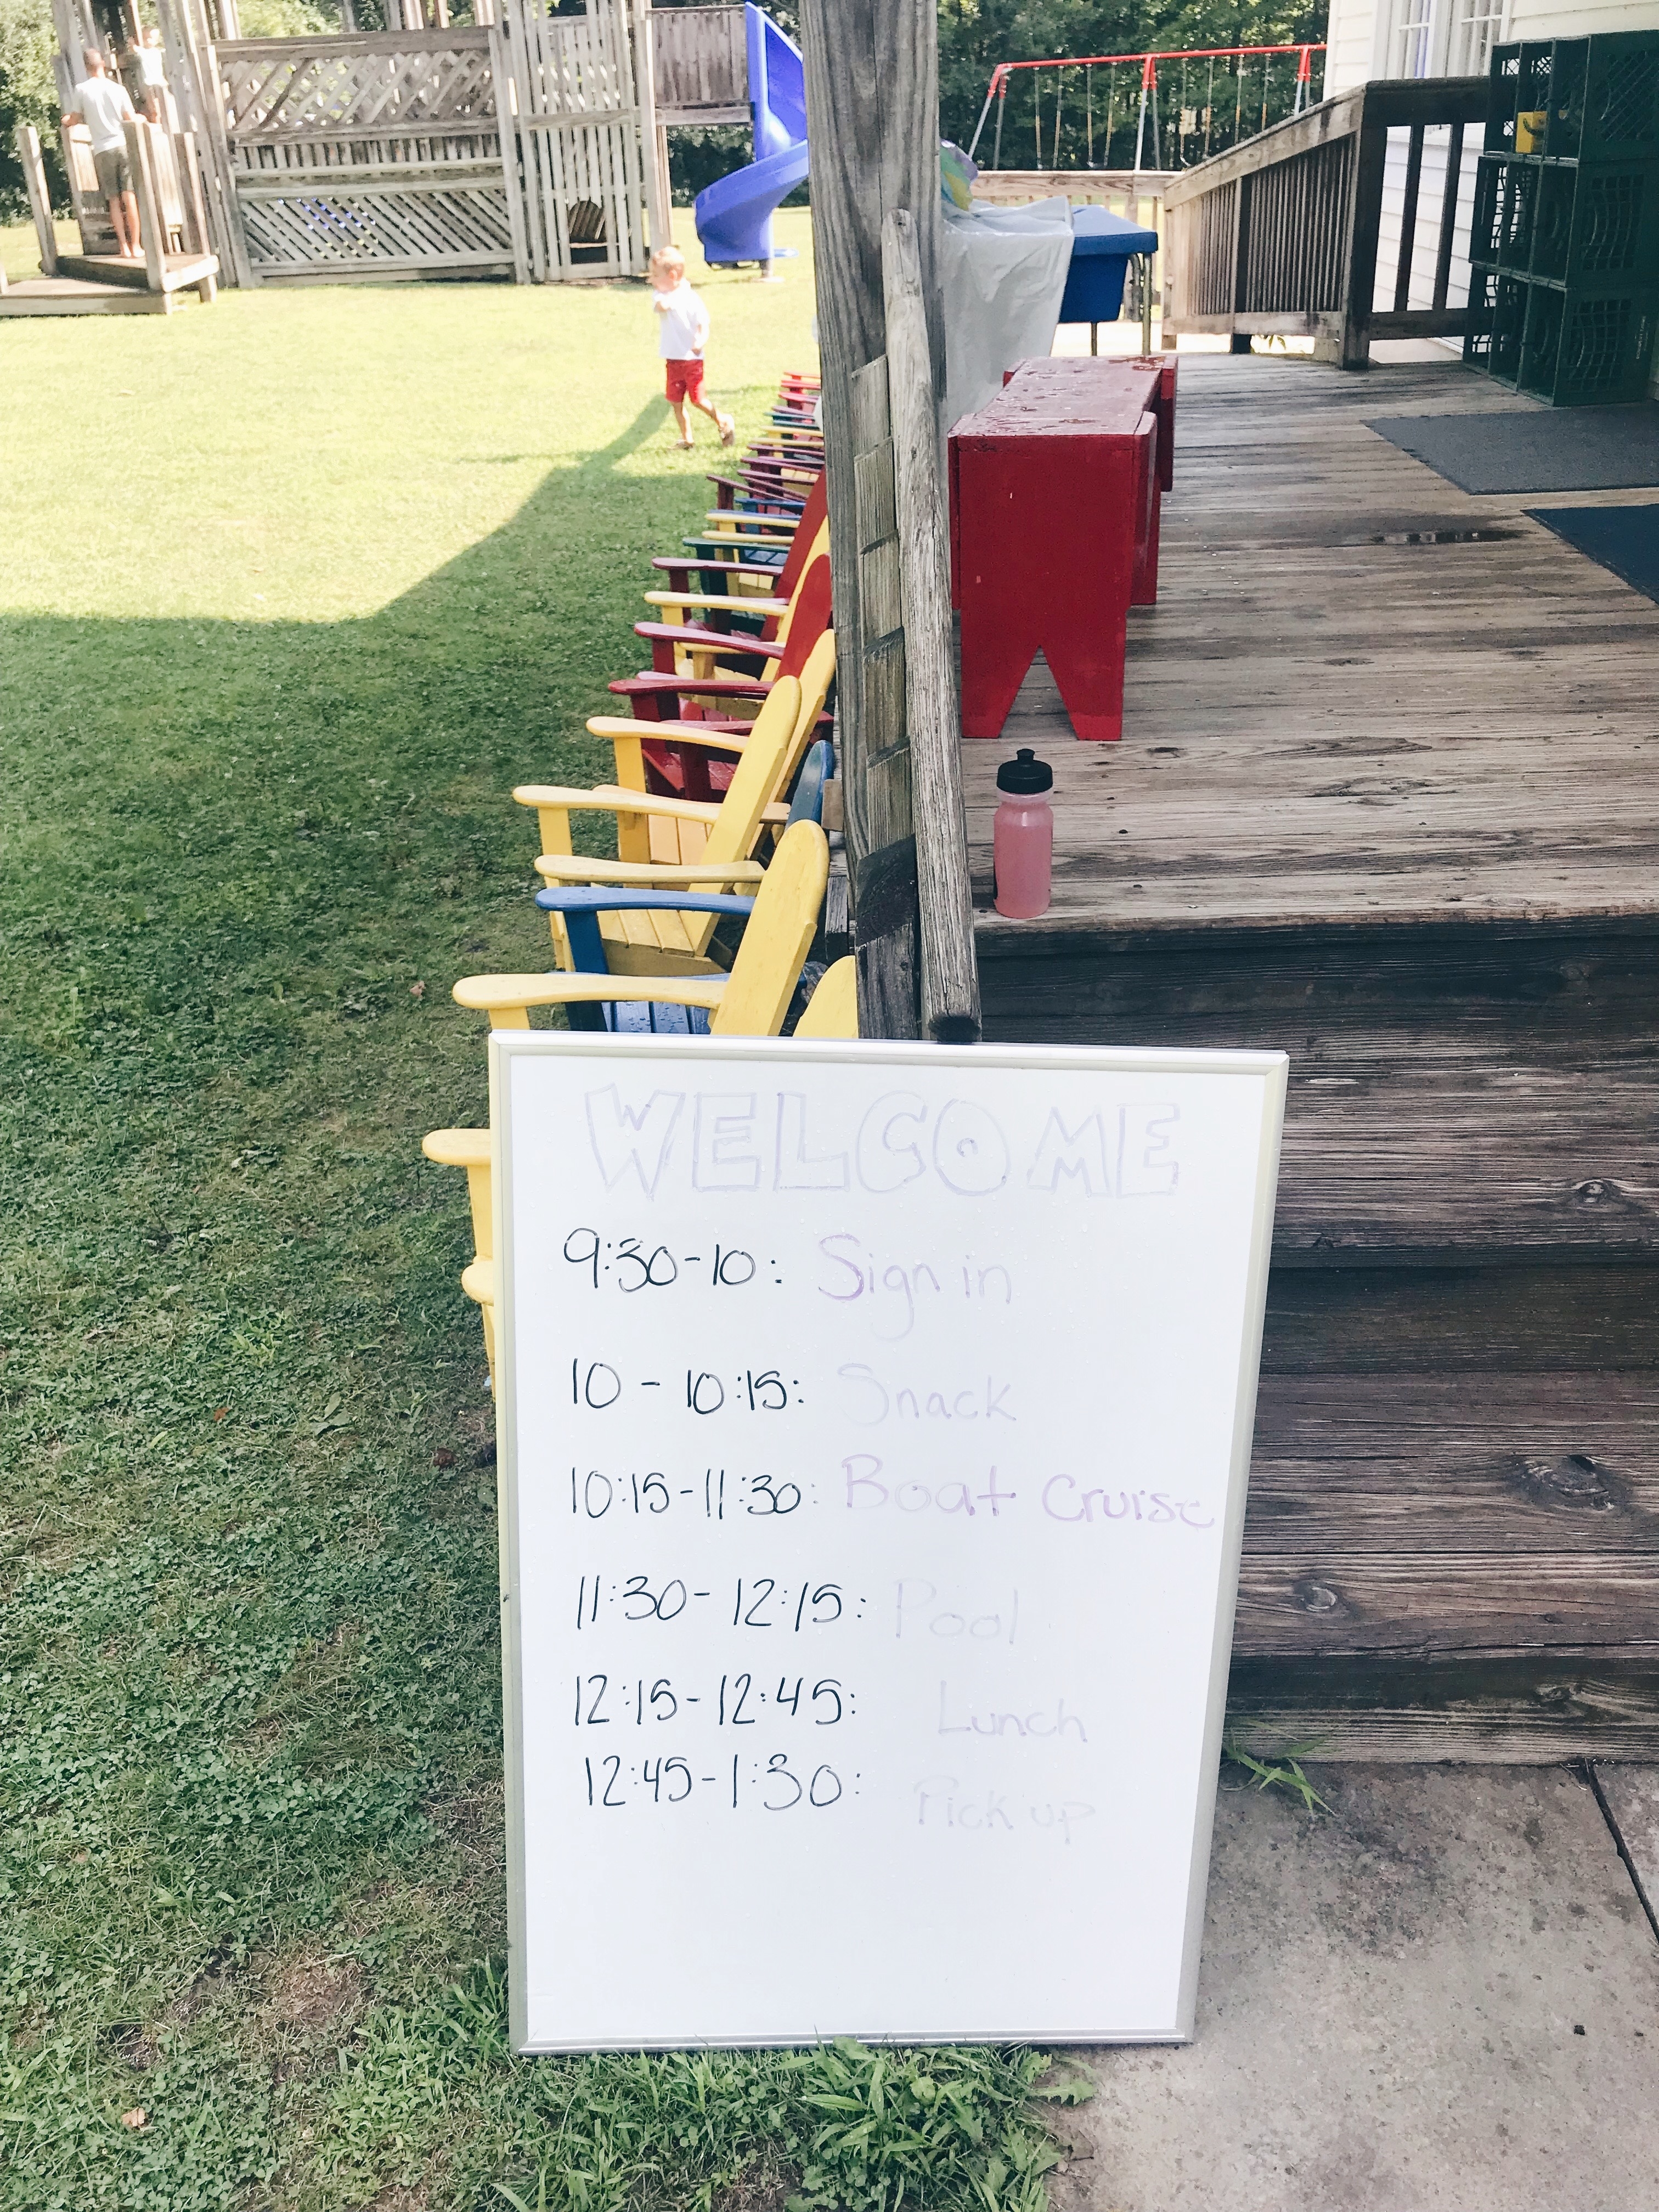 WELCOME
9:30-10: Sign in
10 - 10:15: Snack
10:15-11:30: Boat Cruise
11:30- 12:15: Pool
12:15-12:45: Lunch
12:45-1:30: Pick up